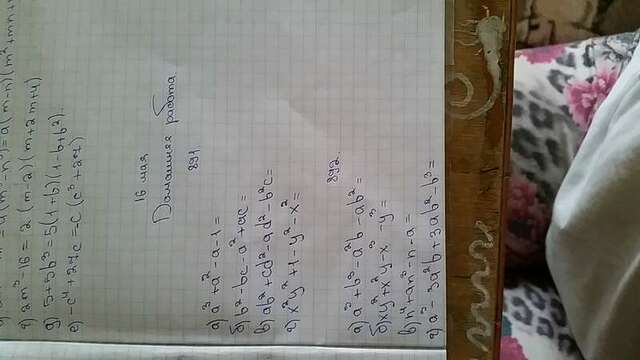 = a(m-n)(m²+mn+
г) 2m³-16= 2(m-2)(m+2m+4)
д) 5+5b³=5(1+b)(1-b+b²).
е) -c⁴+27c=-c(c³+27)
16 мая
Домашняя работа
891.
а) a³+a²-a-1=
б) b²-bc-a²+ac=
в) ab²+cd²-ad²-b²c=
г) x²y²+1-y²-x²=
892.
а) a³+b³-a²b-ab²=
б) xy²+x²y-x³-y³=
в) n⁴+an³-n-a=
г) a³-3a²b+3ab²-b³=